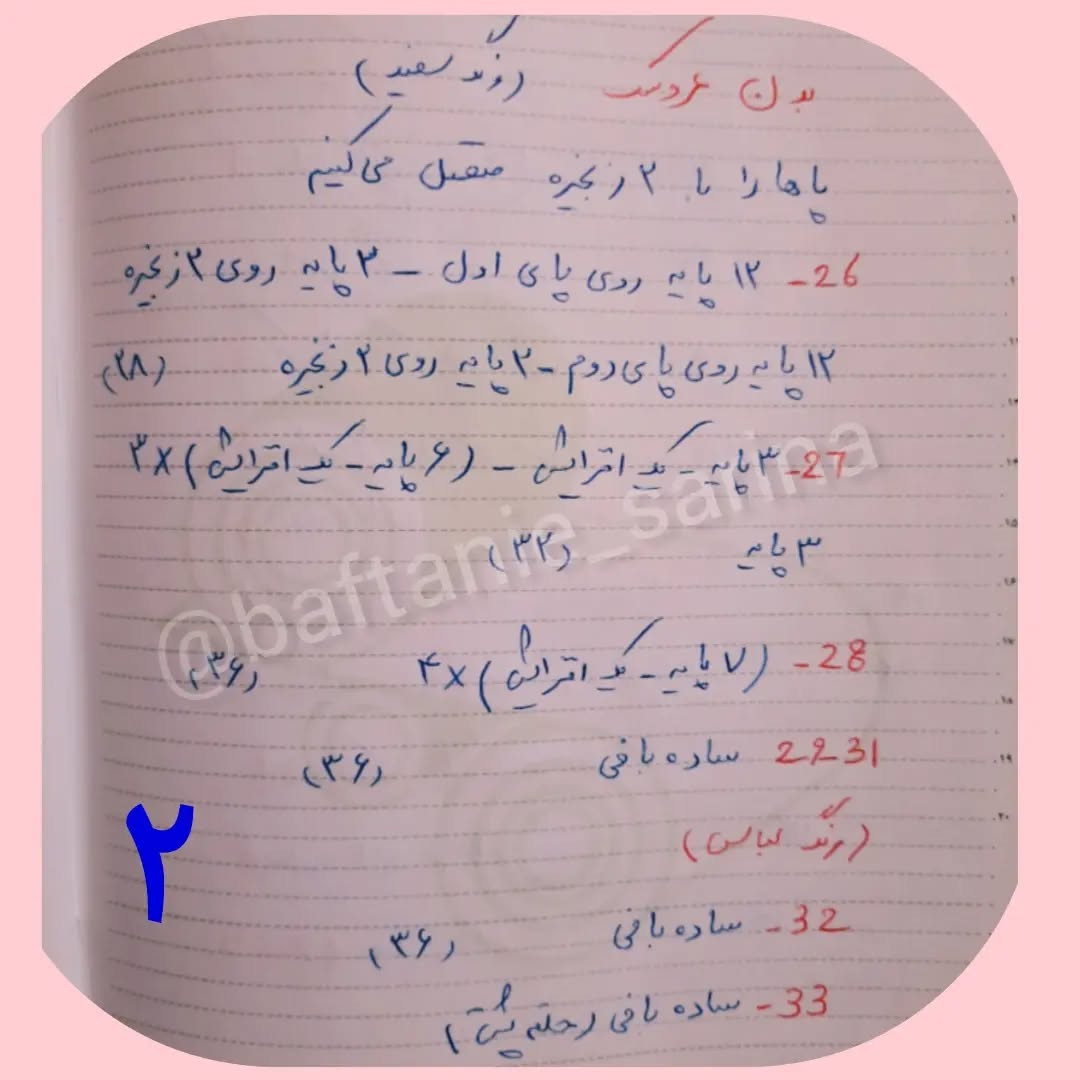 بدن عروسک (رنگ سفید)
پاها را با ۲ زنجیره متصل می‌کنیم
26- ۱۲ پایه روی پای اول - ۲ پایه روی ۲ زنجیره
۱۲ پایه روی پای دوم - ۲ پایه روی ۲ زنجیره (۲۸)
27- ۳ پایه - یک افزایش - (۶ پایه - یک افزایش) ×۳
۳ پایه (۳۲)
28- (۷ پایه - یک افزایش) ×۴ (۳۶)
29-31 ساده بافی (۳۶)
(رنگ لباس)
32- ساده بافی (۳۶)
33- ساده بافی (حلقه پشتی)
۲
@baftanie_sarina